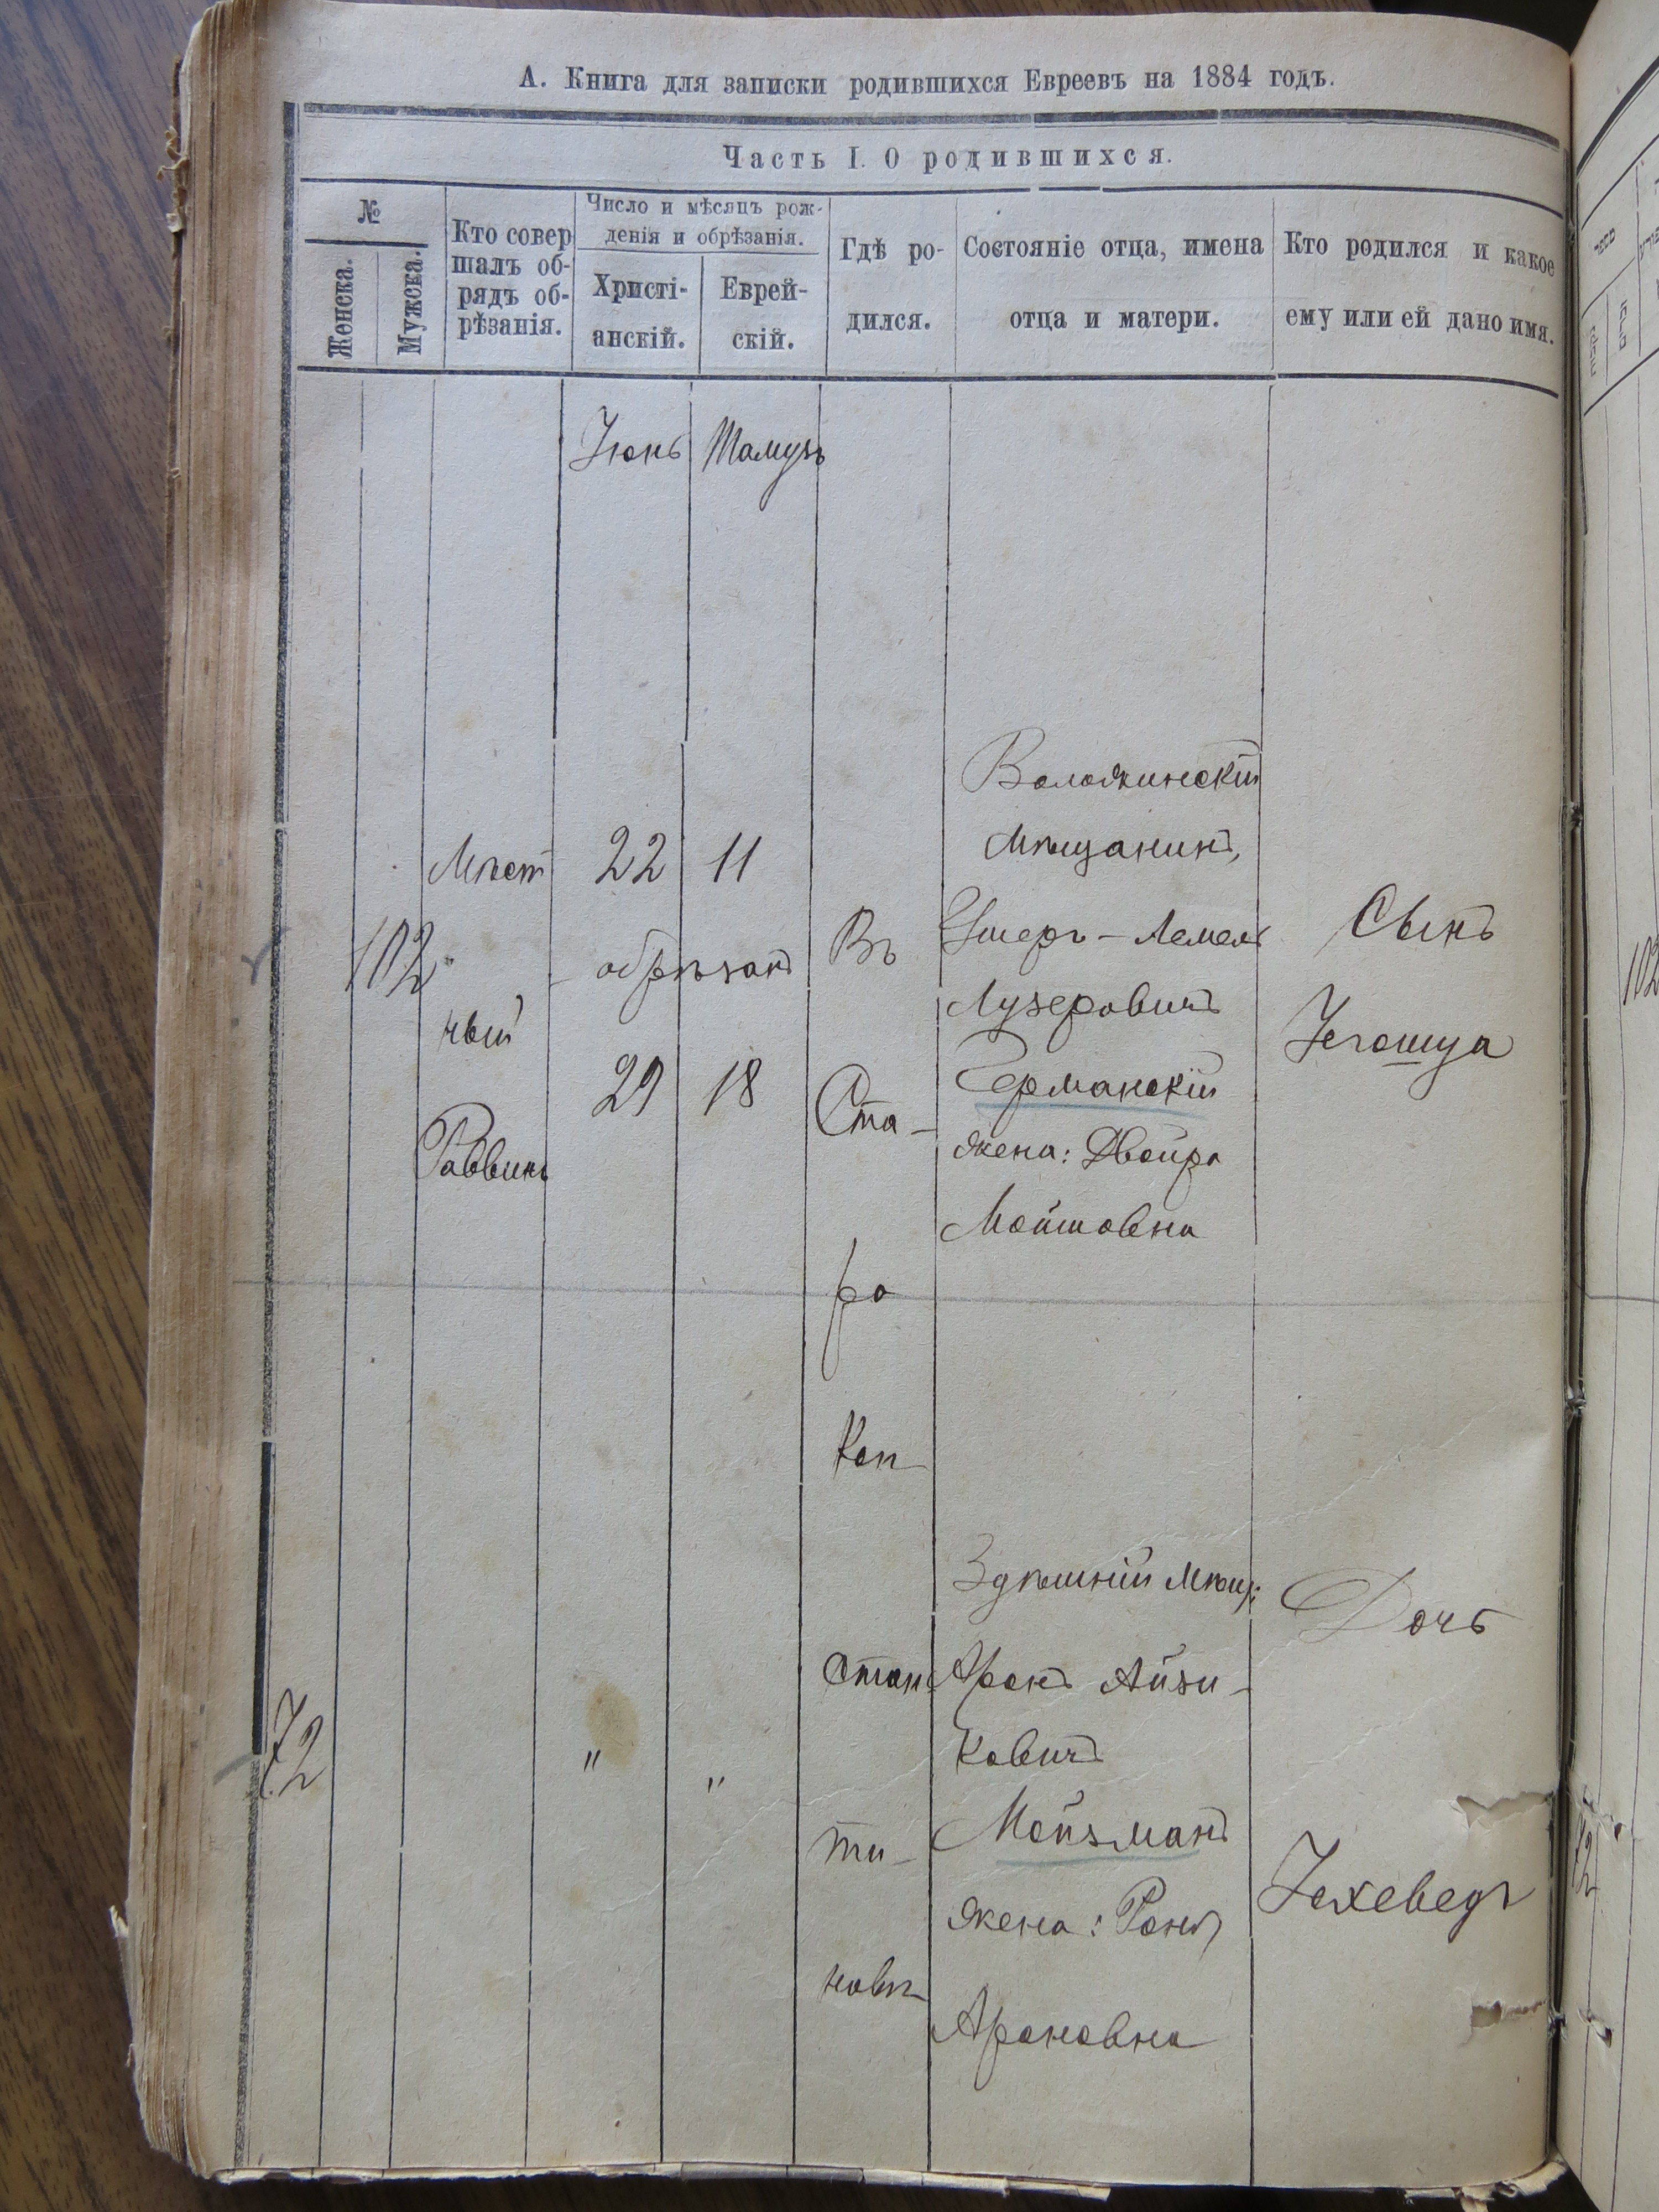 А. Книга для записки родившихся Евреевъ на 1884 годъ.
Часть I. О родившихся.
№
Женска.
Мужска.
Кто совер
шалъ об-
рядъ об-
рѣзанія.
Число и мѣсяцъ рож-
денія и обрѣзанія.
Христі-
анскій.
Еврей-
скій.
Гдѣ ро-
дился.
Состояніе отца, имена
отца и матери.
Кто родился и какое
ему или ей дано имя.
Іюнь
Тамузъ
102
Мѣст
ный
Раввинъ
22
11
обрѣзанъ
29
18
Въ
Ста-
ро
Кон-
стан-
ти-
новѣ
Воложинскій
мѣщанинъ,
Лемель
Лузеровичъ
Германскій
жена: Двойра
Мойшовна
Сынъ
Іегошуа
72
"
"
Здѣшній мѣщ:
Аронъ Айзи-
ковичъ
Мойзманъ
жена:
Ароновна
Дочь
Іохеведъ
102
72